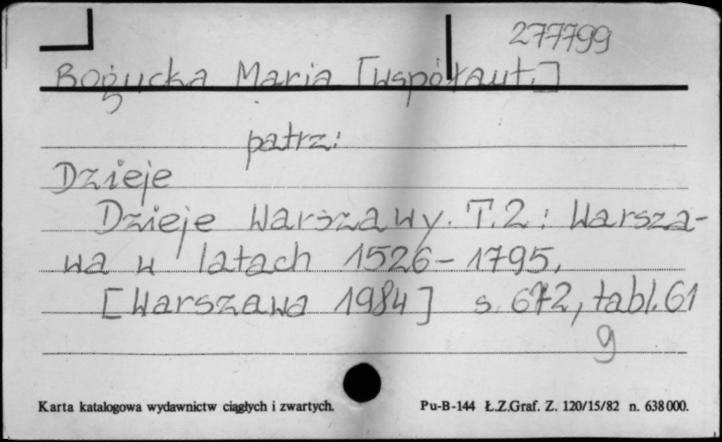 277799
Bogucka Maria [współaut.]
patrz:
Dzieje
Dzieje Warszawy. T.2: Warsza-
wa w latach 1526-1795.
[Warszawa 1984] s. 672, tabl. 61
g
Karta katalogowa wydawnictw ciągłych i zwartych. Pu-B-144 Ł.Z.Graf. Z. 120/15/82 n. 638000.